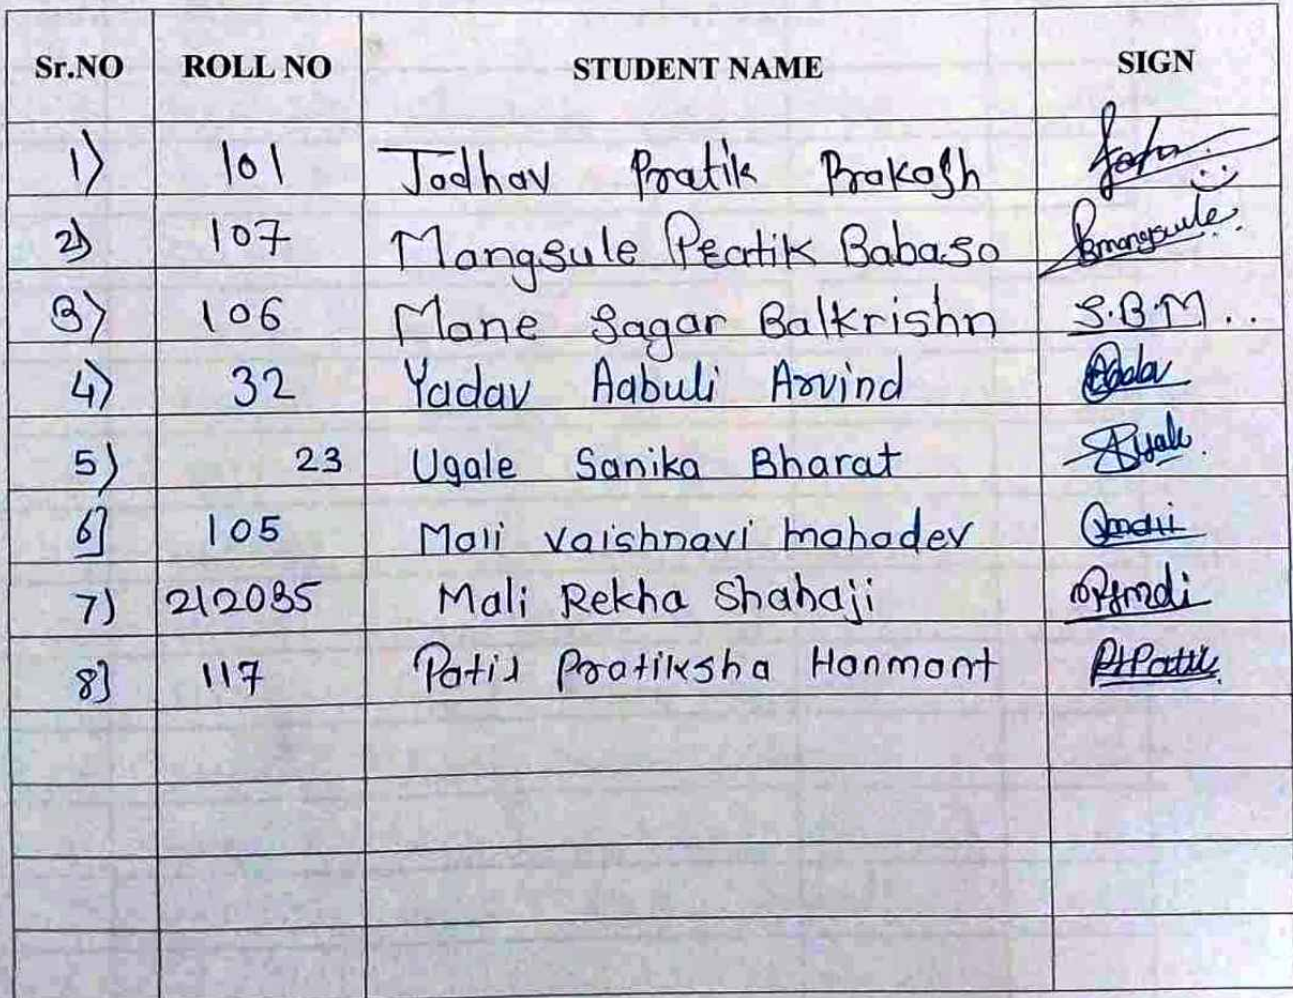 Sr.NO ROLL NO STUDENT NAME SIGN
1) 101 Jadhav Pratik Prakash
2) 107 Mangsule Peatik Babaso Pmangsule
3) 106 Mane Sagar Balkrishn S.B.M..
4) 32 Yadav Aabuli Arvind
5) 23 Ugale Sanika Bharat
6] 105 Mali vaishnavi mahadev
7) 212035 Mali Rekha Shahaji
8] 117 Patil Pratiksha Hanmant PHPatil